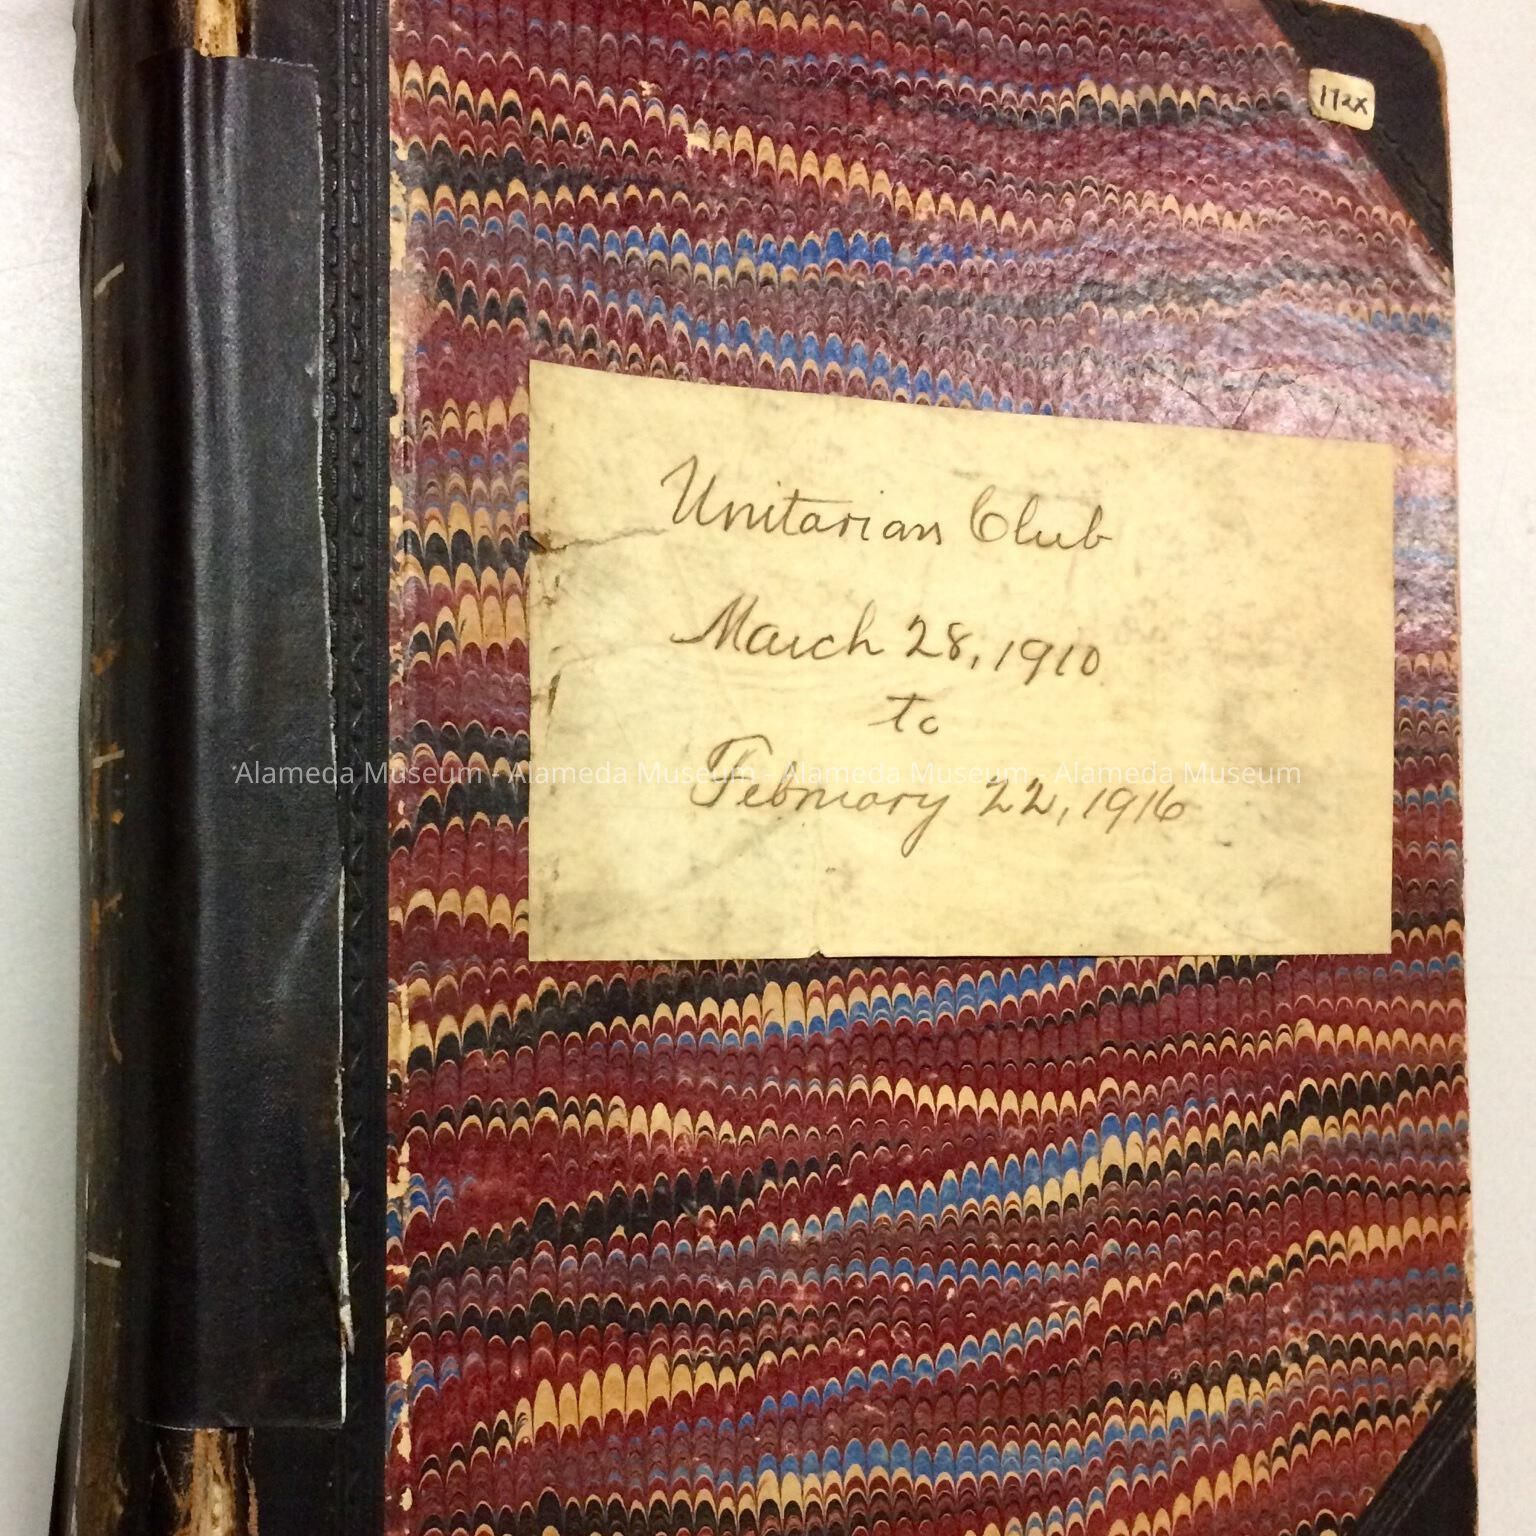 172X
Unitarian Club
March 28, 1910
to
February 22, 1916
Alameda Museum - Alameda Museum - Alameda Museum - Alameda Museum